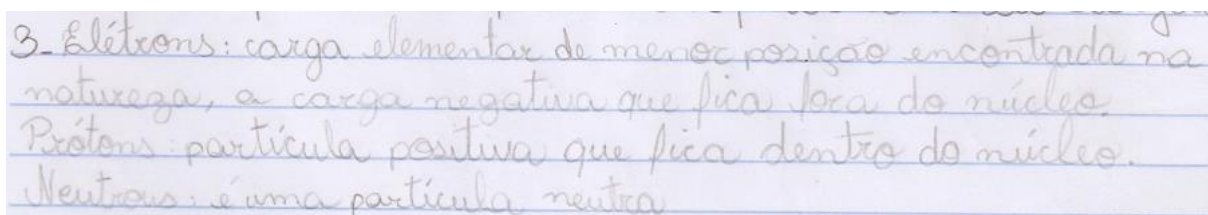 3- Elétrons: carga elementar de menor posição encontrada na
natureza, a carga negativa que fica fora do núcleo.
Prótons: partícula positiva que fica dentro do núcleo.
Neutrons: é uma partícula neutra